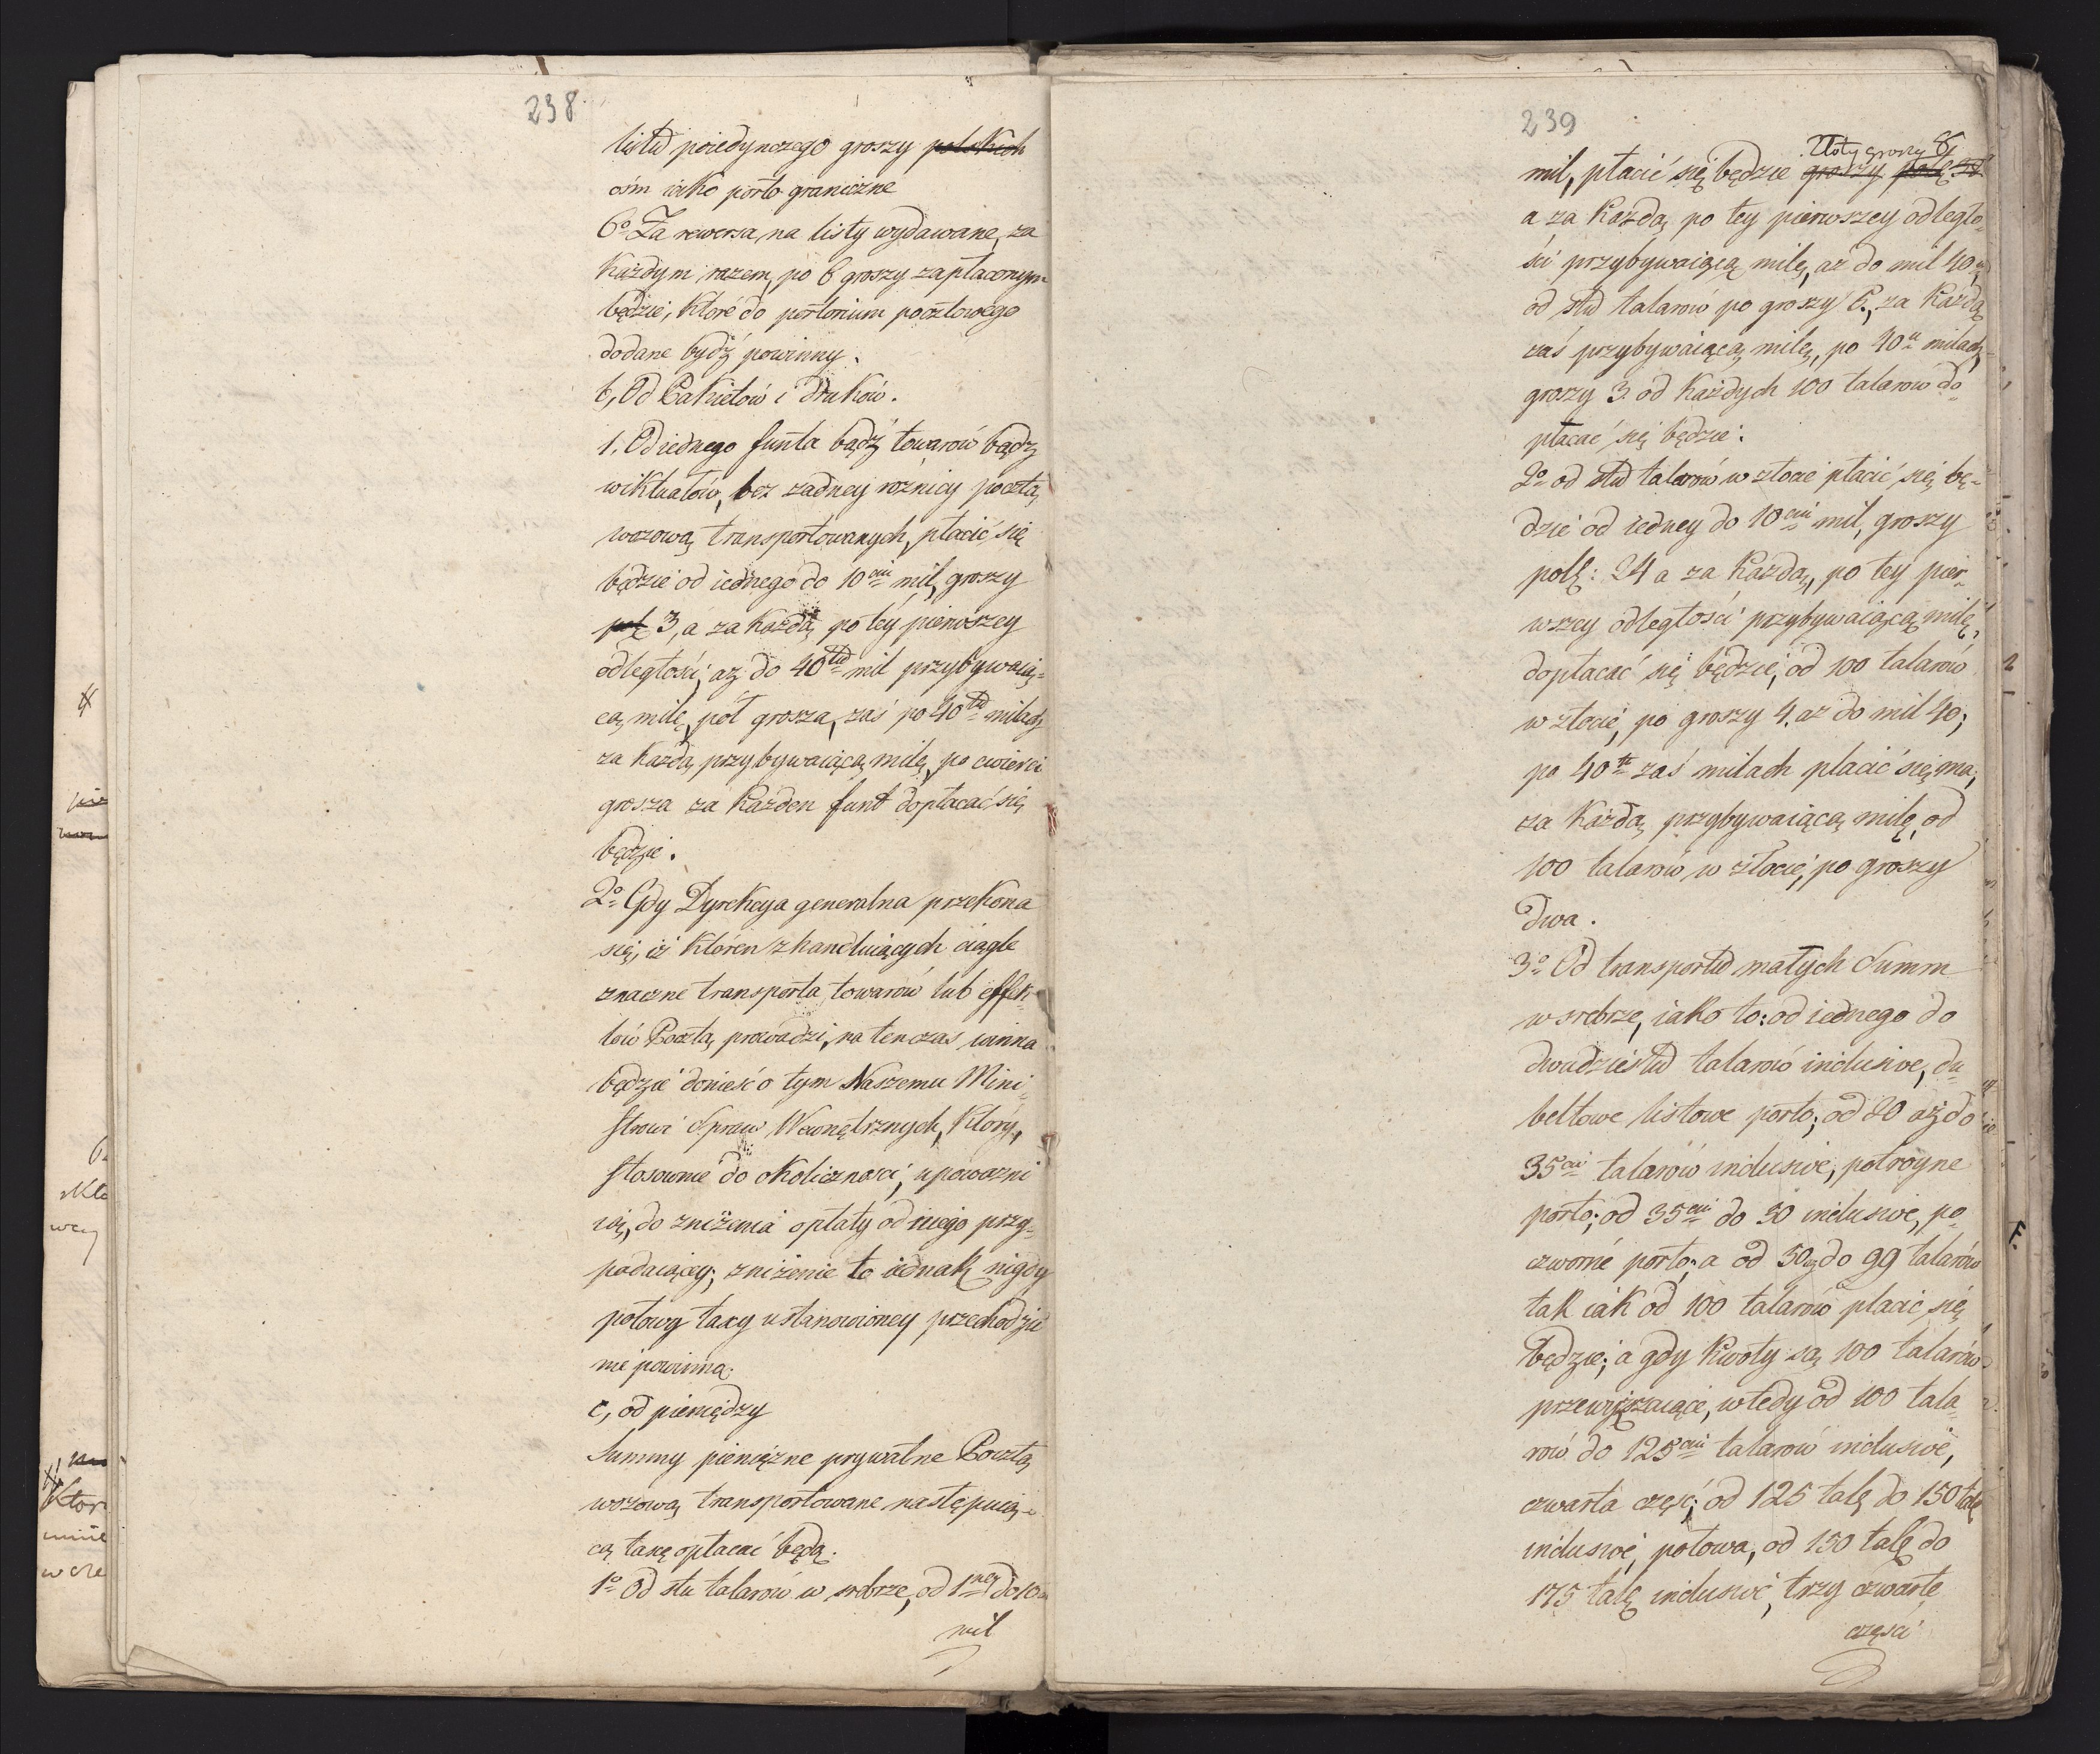 238
listu poiedynczego groszy polskich
ośm iako porto graniczne
6o Za rewersa, na listy wydawane, za
każdym razem, po 6 groszy zapłaconym
będzie, które do portorium pocztowego
dodane bydź powinny.
b, Od Pakietów i druków.
1. Od iednego funta bądź towarów bądź
wiktuałów, bez żadney rożnicy pocztą
wozową transportowanych, płacić się
będzie od iednego do 10ciu mil, groszy
pol 3, a za każdą po téy pierwszey
odległości, aż do 40tu mil przybywaią-
cą milę, pół grosza, zaś po 40tu milach
za każdą przybywaiącą milę, po cwierci
grosza za każden funt dopłacać się
będzie.
2o Gdy Dyrekcya generalna przekona
się, iż któren z handluiących ciągle
znaczne transporta towarów lub effek-
tów Pocztą prowadzi, na tenczas winna
będzie donieść o tym Naszemu Mini-
strowi Spraw Wewnętrznych, który,
stosownie do okoliczności, upoważni
ią, do zniżenia opłaty od niego przy-
padaiącey; zniżenie to iednak nigdy
połowy taxy ustanowioney przechodzić
nie powinno.
c, od pieniędzy
Summy pieniężne prywatne Pocztą
wozową transportowane następuią-
cą taxę opłacać będą.
1o Od stu talarów w srebrze, od 1ney do 10
mil
239
Złoty groszy 8
mil, płacić się będzie groszy pol 38
a za każdą po tey pierwszey odległo-
ści przybywaiącą milę, aż do mil 40
od stu talarów po groszy 6., za każdą
zaś przybywaiącą milę, po 40u milach,
groszy 3 od każdych 100 talarow do-
płacać się będzie.
2o od stu talarów w złocie płacić się bę-
dzie od iedney do 10ciu mil, groszy
pol: 24 a za każdą, po tey pier-
wszey odległości przybywaiącą milę,
dopłacać się będzie, od 100 talarów
w złocie, po groszy 4. aż do mil 40;
po 40tu zaś milach płacić się ma,
za każdą przybywaiącą milę, od
100 talarów w złocie, po groszy
dwa.
3o Od transportu małych Summ
w srebrze, iako to: od iednego do
dwudziestu talarów inclusive, du-
beltowe listowe porto; od 20 aż do
35ciu talarów inclusive, potroyne
porto; od 35ciu do 50 inclusive, po-
czworne porto; a od 50 do 99 talarów
tak iak od 100 talarów płacić się
będzie; a gdy kwoty są 100 talarów
przewyższaiące, wtedy od 100 tala-
rów do 125ciu talarów inclusive,
czwarta część; od 125 tal do 150 tal
inclusive, połowa, od 150 tal do
175 tal inclusive, trzy czwarte
części